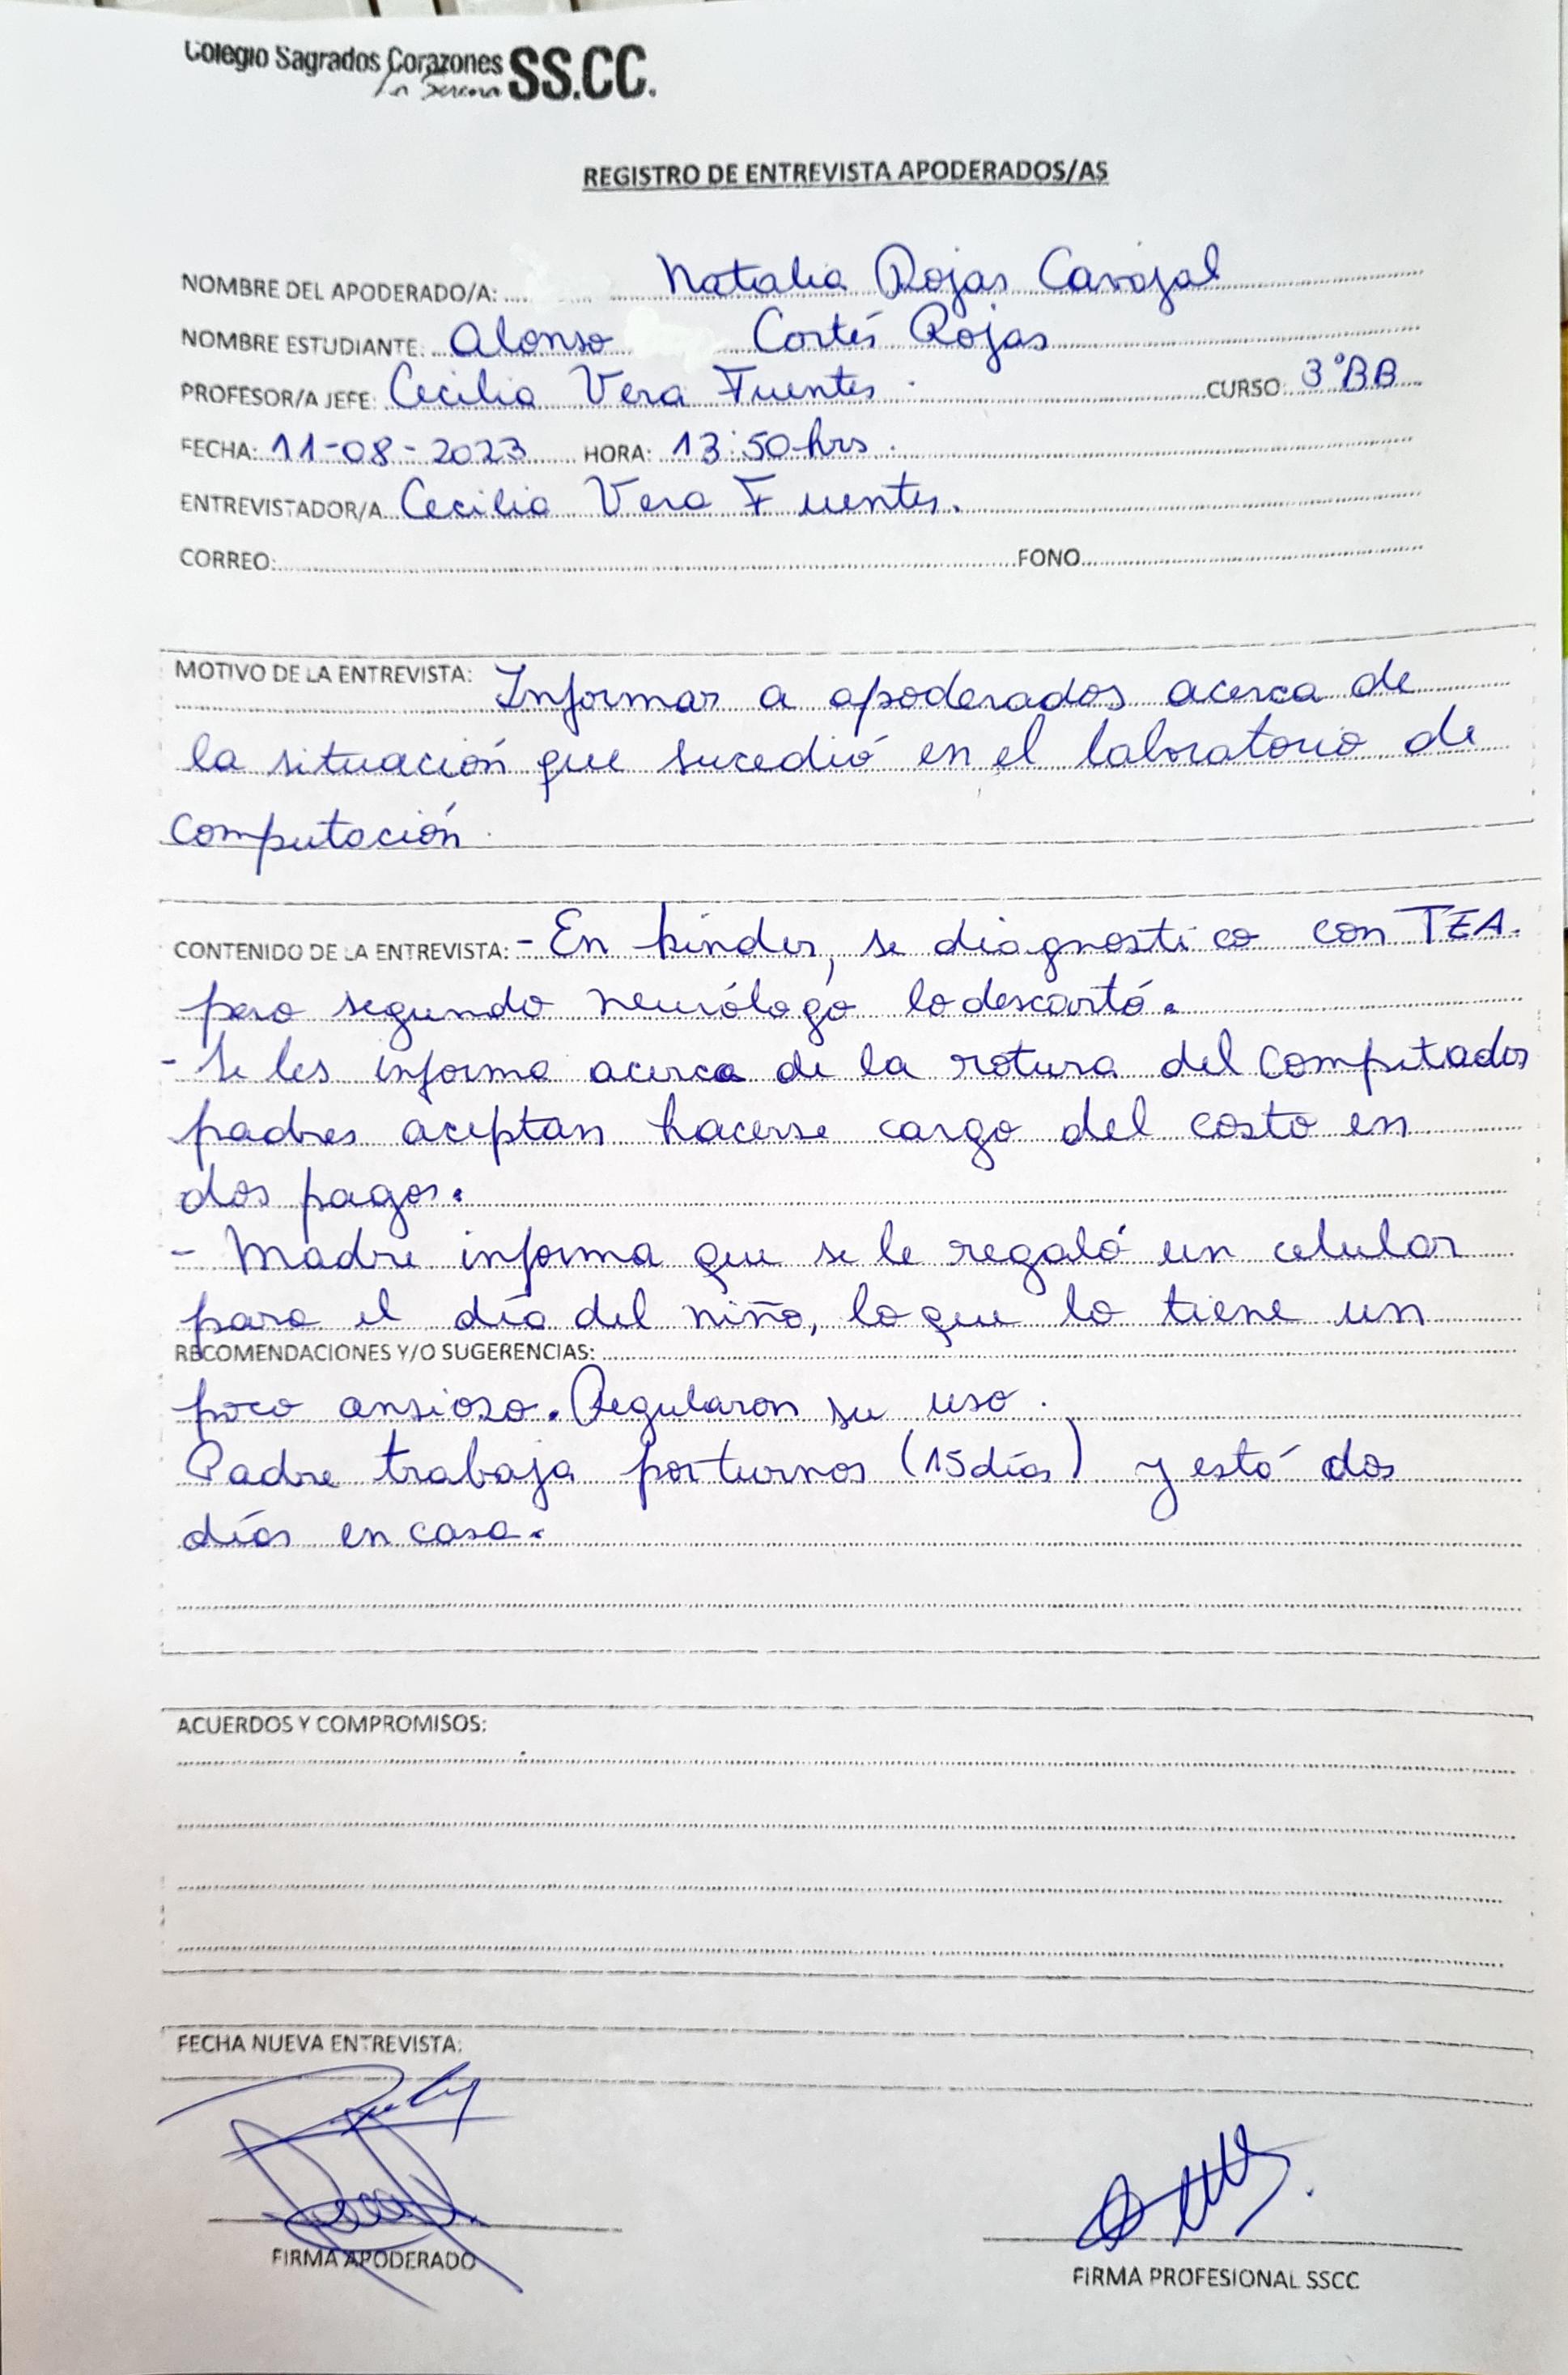 Colegio Sagrados Corazones SS.CC.
La Serena
REGISTRO DE ENTREVISTA APODERADOS/AS
NOMBRE DEL APODERADO/A: Natalia Rojas Carvajal
NOMBRE ESTUDIANTE: Alonso Cortés Rojas
PROFESOR/A JEFE: Cecilia Vera Fuentes. CURSO: 3°BB
FECHA: 11-08-2023 HORA: 13:50 hrs.
ENTREVISTADOR/A Cecilia Vera Fuentes.
CORREO: FONO
MOTIVO DE LA ENTREVISTA: Informar a apoderados acerca de
la situación que sucedió en el laboratorio de
computación.
CONTENIDO DE LA ENTREVISTA: - En kinder, se diagnostico con TEA.
pero segundo neurólogo lo descartó.
- Se les informa acerca de la rotura del computador
padres aceptan hacerse cargo del costo en
dos pagos.
- Madre informa que se le regaló un celular
para el día del niño, lo que lo tiene un
RECOMENDACIONES Y/O SUGERENCIAS:
poco ansioso. Regularon su uso.
Padre trabaja por turnos (15 días) y está dos
días en casa.
ACUERDOS Y COMPROMISOS:
FECHA NUEVA ENTREVISTA:
FIRMA APODERADO
FIRMA PROFESIONAL SSCC